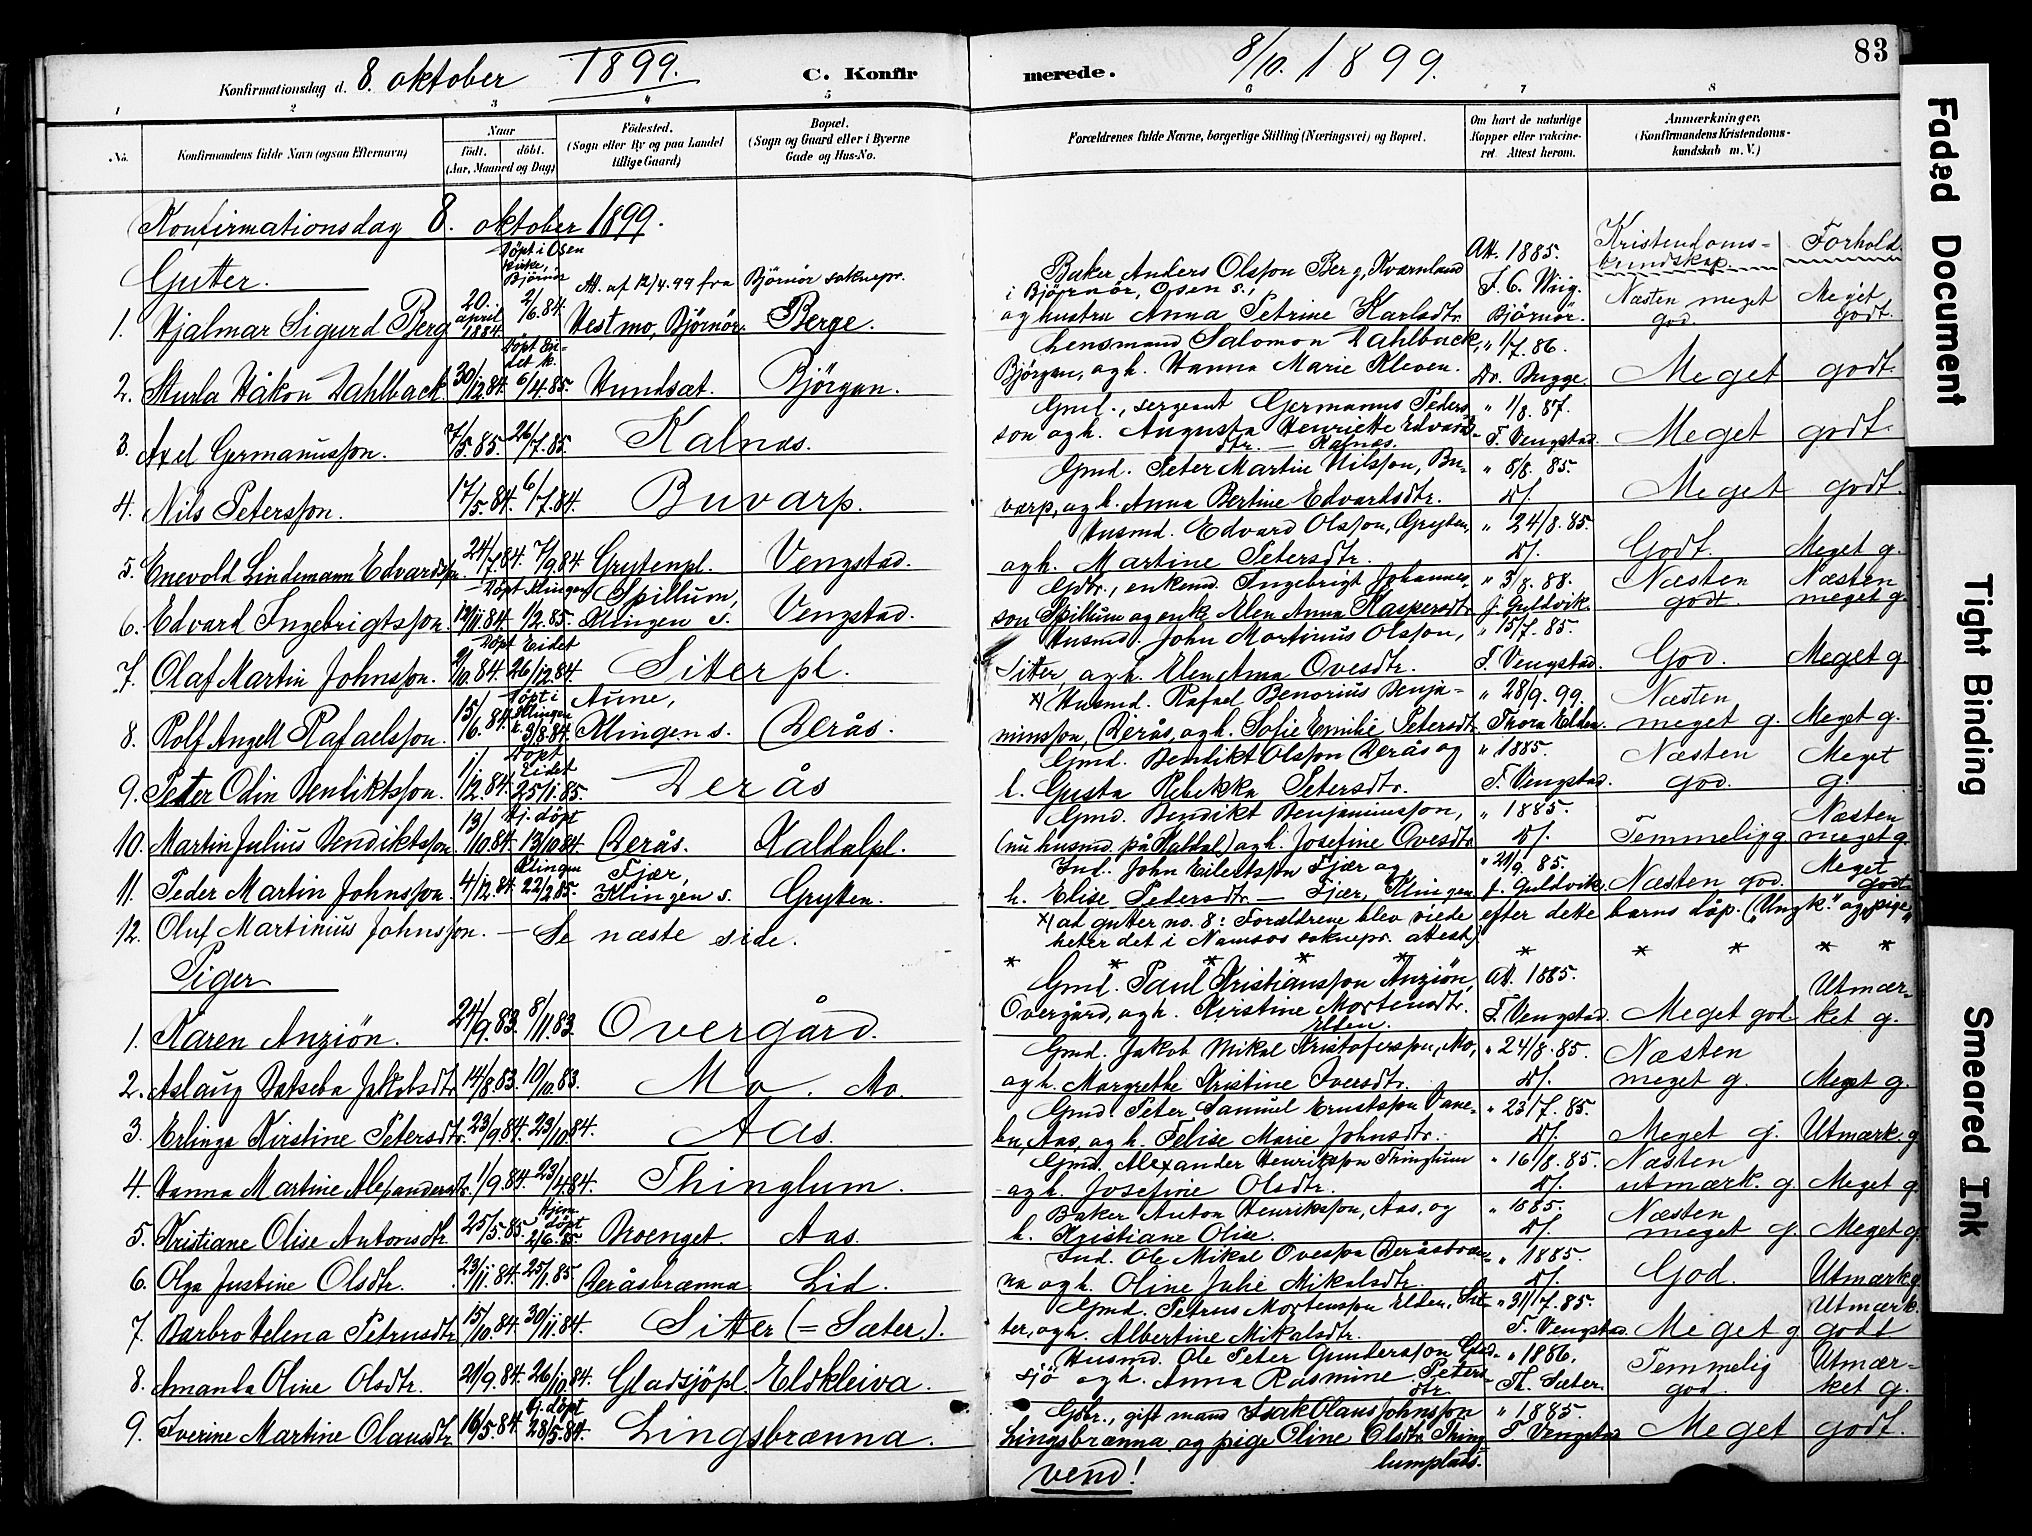 83
Konfirmationsdag d. 8. oktober 1899. C. Konfir
merede. 8/10. 1899.
1 2 3 4 5 6 7 8
No. Konfirmandens fulde Navn (ogsaa Efternavn) Naar födt. döbt. (Aar, Maaned og Dag) Födested. (Sogn eller By og paa Landet tillige Gaard) Bopæl. (Sogn og Gaard eller i Byerne Gade og Hus-No.
Forældrenes fulde Navne, borgerlige Stilling (Næringsvei) og Bopæl. Om havt de naturlige Kopper eller vaccineret. Attest herom. Anmærkninger. (Konfirmandens Kristendomskundskab m. V.)
Konfirmationsdag 8. oktober 1899.
Kristendomskundskap. Forhold.
Gutter.
Döpt i Osen kirke, Björnör
Att. af 12/4.99 fra Björnör soknepr.
1. Hjalmar Sigurd Berg 20. april 1884. 2/6.84. Vestmo, Björnör. Berge.
Baker Anders Olsson Berg, Kvarnland i Björnör, Osen s., og hustru Anna Petrine Karlsdtr. Att. 1885. Björnör. Næsten meget god. Meget godt.
2. Sturla Håkon Dahlback 30/12.84. Döpt Eidet k. 6/4.85. Hundsæt. Björgan.
Lensmand Salomon Dahlback, Björgan, og h. Hanna Marie Kleven. " 1/7.86. Dr. Bugge. Meget godt.
3. Axel Germanusson. 7/5.85. 26/7.85. Kalnæs.
Gmd., sergeant Germanus Pedersson og h. Augusta Henriette Edvardsdtr. — Kalnæs. " 1/8.87. F. Vengstad. Meget godt.
4. Nils Petersson. 17/5.84. 6/7.84. Buvarp.
Gmd. Peter Martin Nilsson, Buvarp, og h. Anna Bertine Edvardsdtr. " 8/8.85. D/. Meget godt.
5. Enevold Lindemann Edvardsson. 24/7.84. 7/9.84 Grytenpl. Vengstad.
Husmd. Edvard Olsson, Gryten, og h. Martine Petersdtr. " 24/8.85. D/. Godt. Meget g.
6. Edvard Ingebrigtsson. 12/11.84. Döpt Klingen 1/2.85. Spillum, Klingen s. Vengstad.
Gdbr., enkemd. Ingebrigt Johannesson Spillum og enke Elen Anna Kaspersdtr. " 3/8.88. J. Guldvik. Næsten godt. Næsten meget g.
7. Olaf Martin Johnsson. 2/10.84. Döpt Eidet 26/12.84. Sitter pl.
Husmd. John Martinus Olsson, Sitter, og h. Elen Anna Ovesdtr. " 15/7.85. F. Vengstad. God. Meget g.
8. Rolf Angell Rafaelsson. 15/6.84. Döpt i Klingen k. 3/8.84. Aune, Klingen s. Derås.
x) Husmd. Rafael Benorius Benjaminsson, Derås, og h. Sofie Emilie Petersdtr. " 28/9.99. Thora Elden. Næsten meget g. Meget g.
9. Peter Odin Bendiktsson. 1/12.84. Döpt Eidet 25/1.85. Derås
Gmd. Bendikt Olsson Derås og h. Gusta Rebekka Petersdtr. " 1885. F. Vengstad. Næsten god. Meget g.
10. Martin Julius Bendiktsson 13/10.84 Hj. döpt 13/10.84 Derås. Kaldalpl.
Gmd. Bendikt Benjaminsson, (nu husmd. på Kaldal) og h. Josefine Ovesdtr. " 1885. D/. Temmelig g. Næsten meget g.
11. Peder Martin Johnsson. 4/12.84. Klingen 22/2.85. Fjær, Klingen s. Gryten.
Ind. John Eilertsson Fjær og h. Elise Pedersdtr. — Fjær, Klingen " 21/9.85. J. Guldvik. Næsten god. Meget godt.
12. Oluf Martinus Johnsson. — Se næste side.
x) ad gutter no. 8: Forældrene blev viede efter dette barns dåp. ("Ungk." og "pige" heter det i Namsos soknepr. attest)
* * * * * * * * *
Piger
1. Karen Anziön. 24/9.83. 8/11.83. Overgård.
Gmd. Paul Kristiansson Anziön, Overgård, og h. Kirstine Mortensdtr. Elden. Att. 1885. F. Vengstad. Meget god. Utmærket g.
2. Aslaug Batseba Jakobsdtr. 14/8.83. 19/10.83. Mo. Mo.
Gmd. Jakob Mikal Kristofersson, Mo, og h. Margrethe Kristine Iversdtr. " 24/8.85. D/. Næsten meget g. Meget g.
3. Erlinga Kirstine Petersdtr. 23/9.84. 23/10.84. Aas.
Gmd. Peter Samuel Ernstsson Fanebu, Aas, og h. Felise Marie Johnsdtr. " 23/7.85. D/. Meget g. Utmærk. g.
4. Hanna Martine Alexandersdtr. 1/9.84. 23/11.84. Thinglum.
Gmd. Alexander Henriksson Thinglum og h. Josefine Olsdtr. " 16/8.85. D/. Næsten utmærk. g. Meget g.
5. Kristiane Olise Antonsdtr. 25/5.85. Hjem. döpt 2/6.85. Droenget. Aas.
Baker Anton Henriksson, Aas, og h. Kristiane Olise. " 1885. D/. Næsten meget g. Meget g.
6. Olga Justine Olsdtr. 23/11.84. 25/1.85 Deråsbrænna Lid.
Ind. Ole Mikal Ovesson Deråsbrænna og h. Oline Julie Mikalsdtr. " 1885. D/. God. Utmærk. g.
7. Barbro Helena Petrusdtr 15/10.84. 30/11.84. Sitter (= Sæter).
Gmd. Petrus Mortensson Elden, Sitter, og h. Albertine Mikalsdtr. " 31/7.85. F. Vengstad. Meget g Utmærk. godt
8. Amanda Oline Olsdtr. 21/9.84. 26/10.84. Gladsjöpl. Eldkleiva.
Husmd. Ole Peter Gundersson Gladsjö og h. Anna Rasmine Petersdtr. " 1886. Th. Sæter. Temmelig god. Utmærket g.
9. Iverine Martine Olausdtr 16/5.84. Hj. döpt 28/5.84. Lingsbrænna.
Gdbr., gift mand Isak Olaus Johnsson Lingsbrænna og pige Oline Olsdtr. Thinglumplads. " 1885. F. Vengstad Meget godt.
vend!
Faded Document
Tight Binding
Smeared Ink